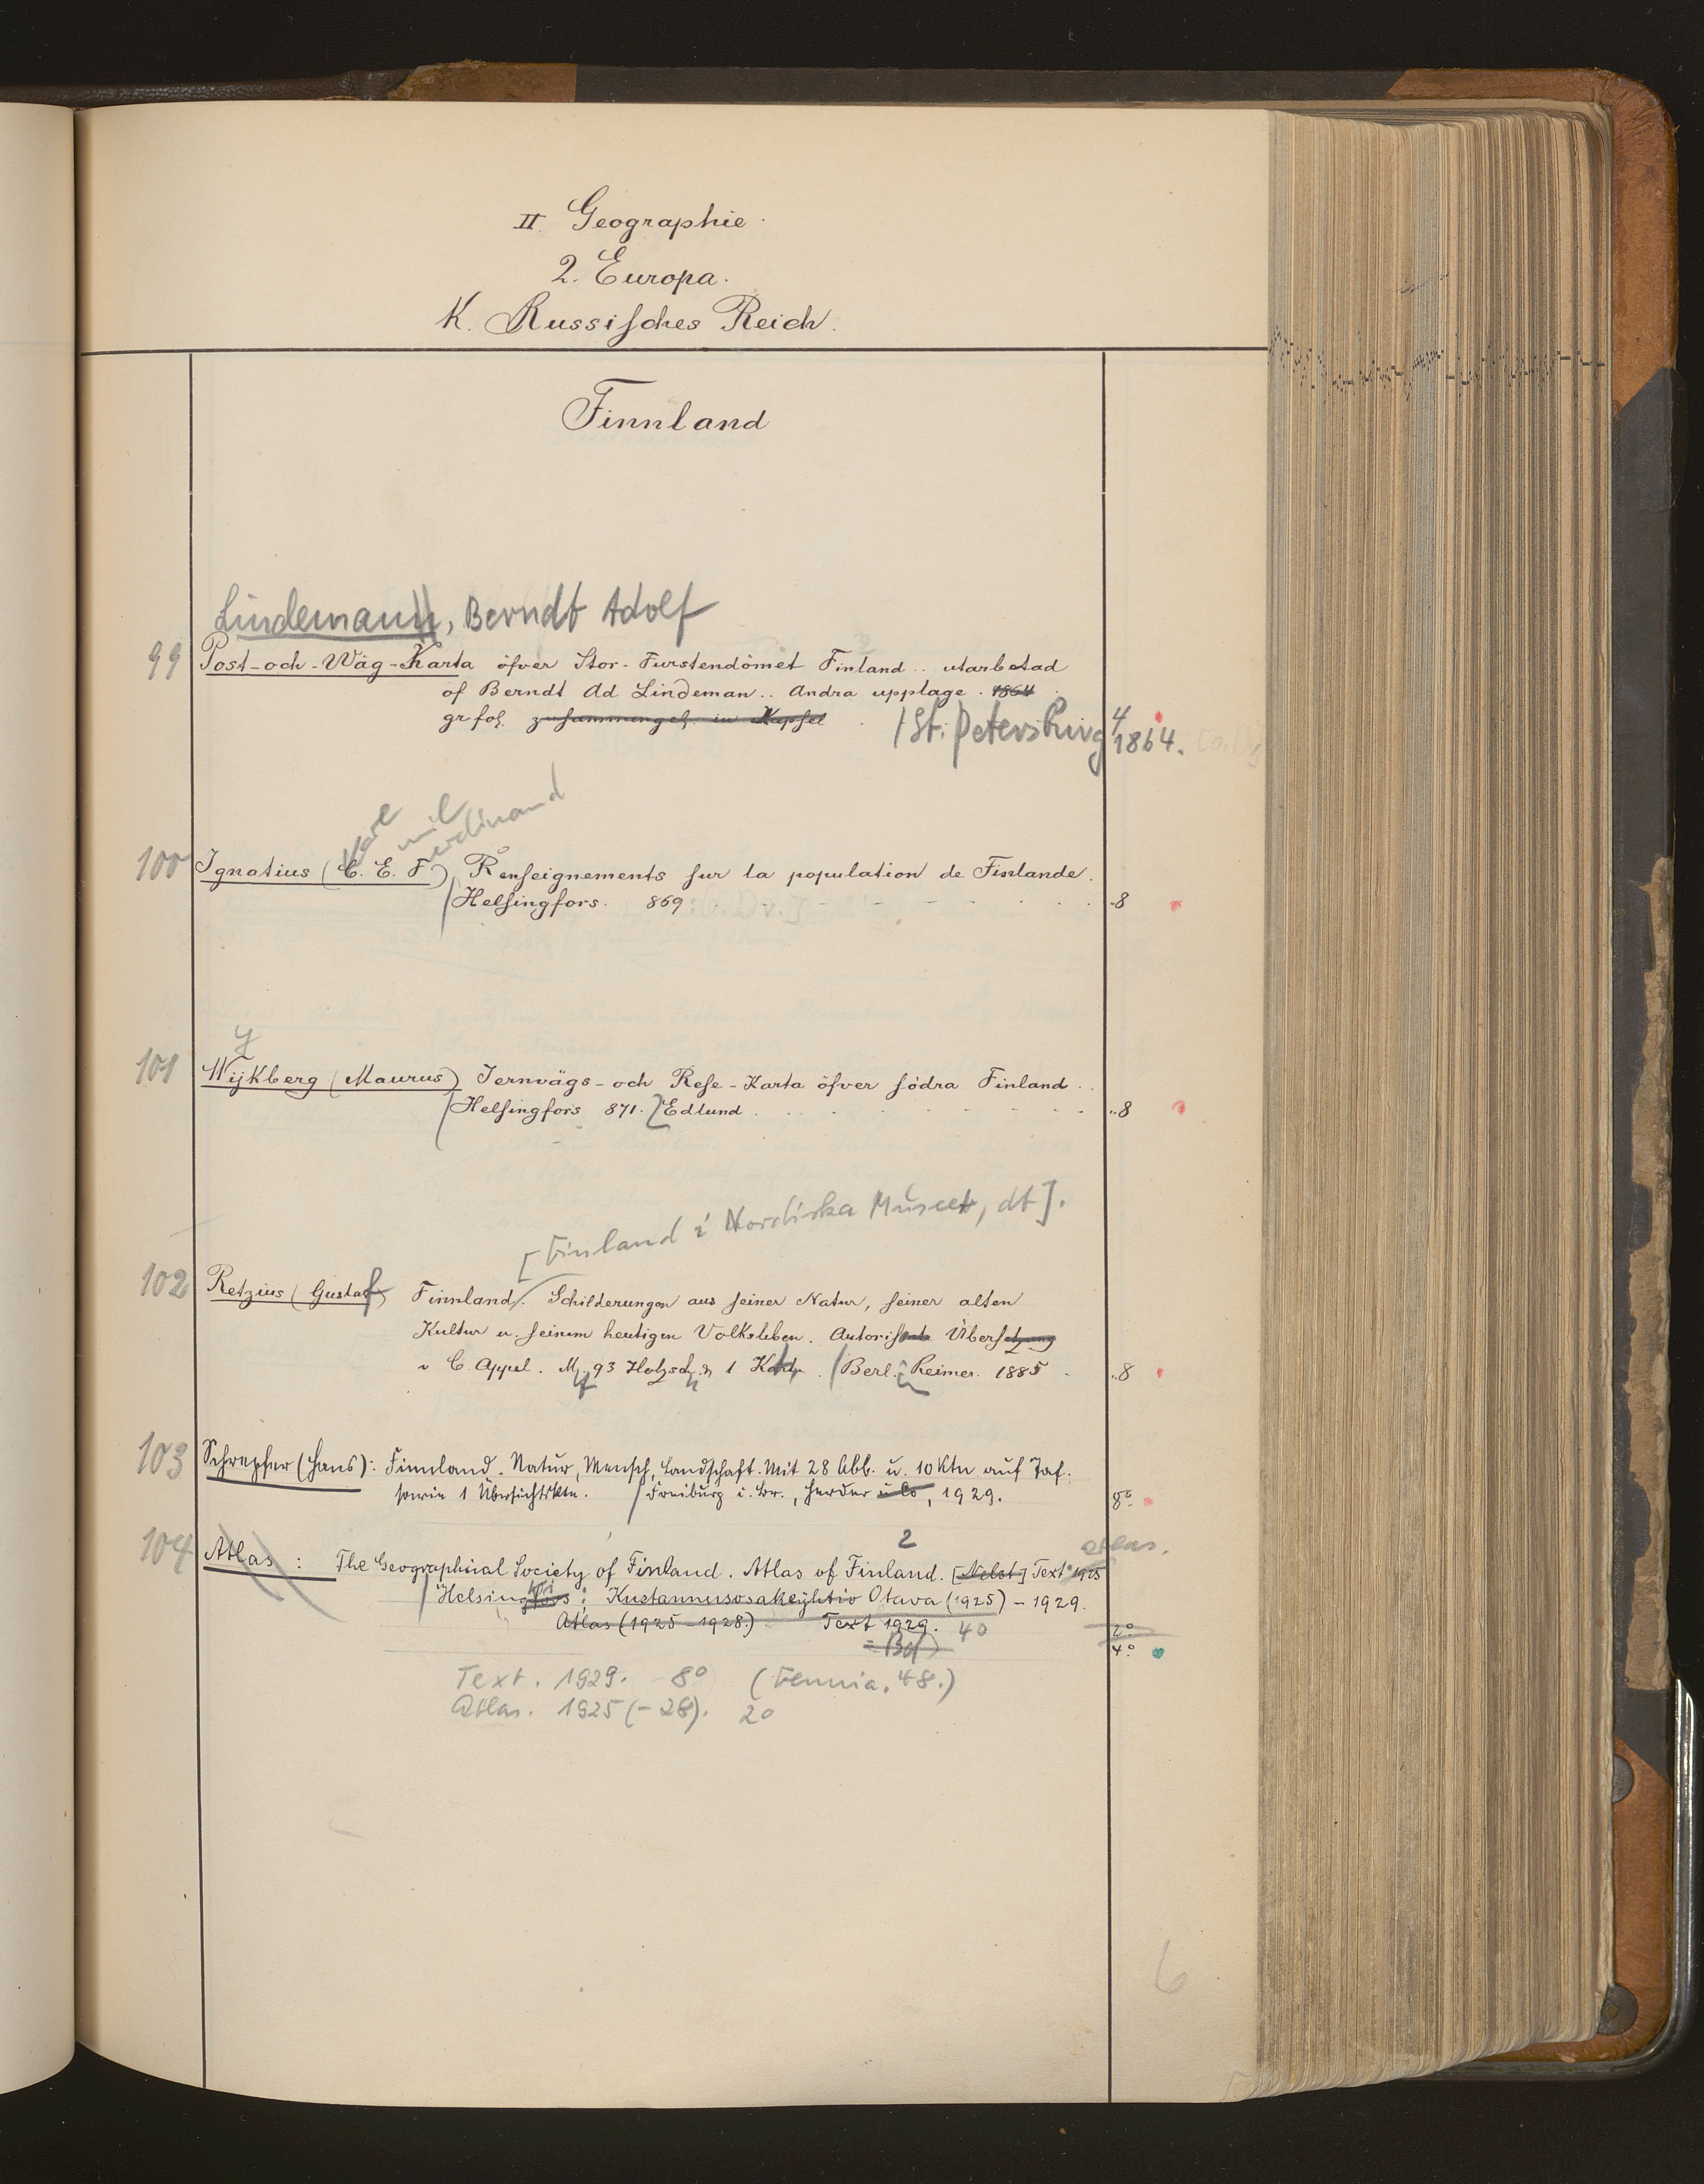 II. Geographie.
2. Europa.
K. Russisches Reich.
Finnland
Lindemann, Berndt Adolf
99 Post-och-Wäg-Karta öfver Stor-Furstendömet Finland .. utarbetad
of Berndt Ad Lindeman .. Andra upplage. 1864
gr fol. zusammengel. in Kapsel /St. Petersburg 1864. 4
Karl
mil
erdinand
100 Ignatius (C. E. F) Renseignements sur la population de Finlande.
/Helsingfors. 869 - - - - 8
y
101 Wijkberg (Maurus) Jernvägs-och Rese-Karta öfver södra Finland ..
/Helsingfors 871. Edlund . . . . . 8
[Finland i Nordiska Museet, dt].
102 Retzius (Gustaf) Finnland. Schilderungen aus seiner Natur, seiner alten
Kultur u. seinem heutigen Volksleben. Autoris. Übersetzung
v C. Appel. M. 93 Holzsch. u 1 Karte. /Berl. Reimer. 1885 . 8
103 Schrepfer (Hans): Finnland. Natur, Mensch, Landschaft. Mit 28 Abb. u. 10 Ktn auf Taf.
sowie 1 Übersichtskte. /Freiburg i. Br., Herder u Co, 1929. 8°.
2 atlas.
104 Atlas: The Geographical Society of Finland. Atlas of Finland. [Nebst] Text 1925
/Helsingfors: Kustannusosakeyhtio Otava (1925) - 1929.
ki
Atlas (1925-1928.) Text 1929. 4° 2°
4°.
Text. 1929. 8° (Fennia. 48.)
Atlas. 1925 (-28). 2°
6